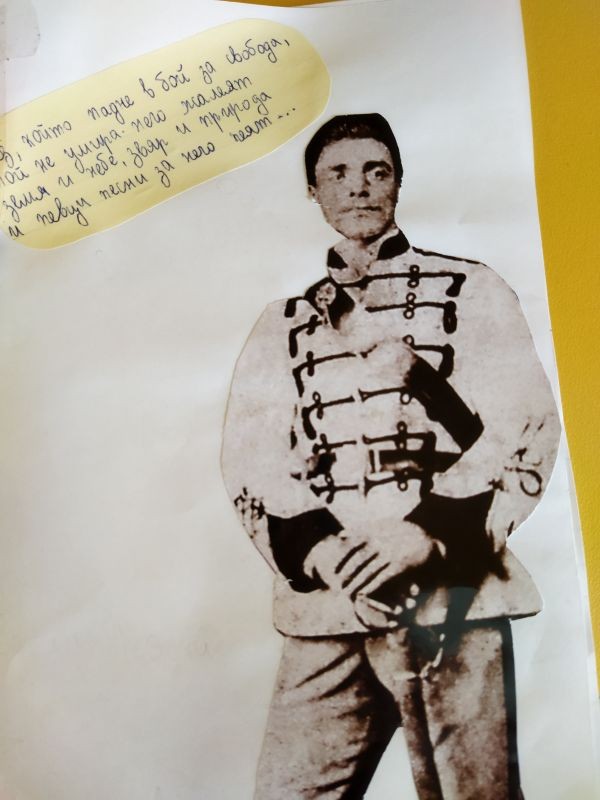 който падне в бой за свобода,
той не умира. него жалеят
земя и небе, звяр и природа
и певци песни за него пеят...